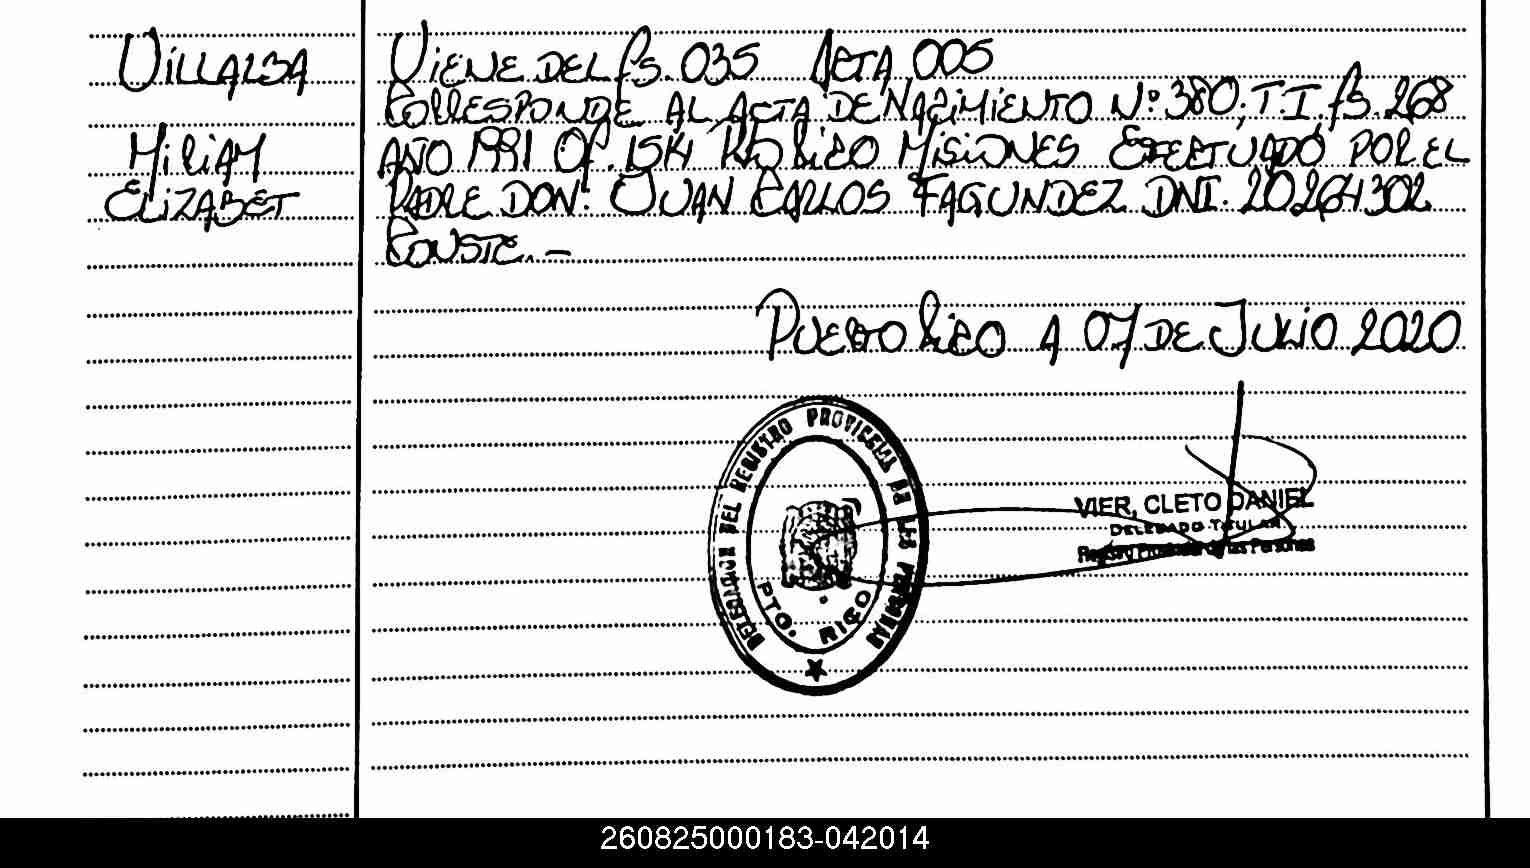 VILLALBA
MIRIAM
ELIZABET
VIENE DEL fs. 035 ACTA 005
CORRESPONDE AL ACTA DE NACIMIENTO Nº 380; T.I. fs. 268
AÑO 1991 Of. 1514 Pto RICO MISIONES EFECTUADO POR EL
PADRE DON: JUAN CARLOS FAGUNDEZ DNI. 20264302
CONSTE. –
PUERTO RICO A 07 DE JULIO 2020
DELEGACION DEL REGISTRO PROVINCIAL DE LAS PERSONAS
PTO. RICO
VIER, CLETO DANIEL
DELEGADO TITULAR
Registro Provincial de las Personas
260825000183-042014